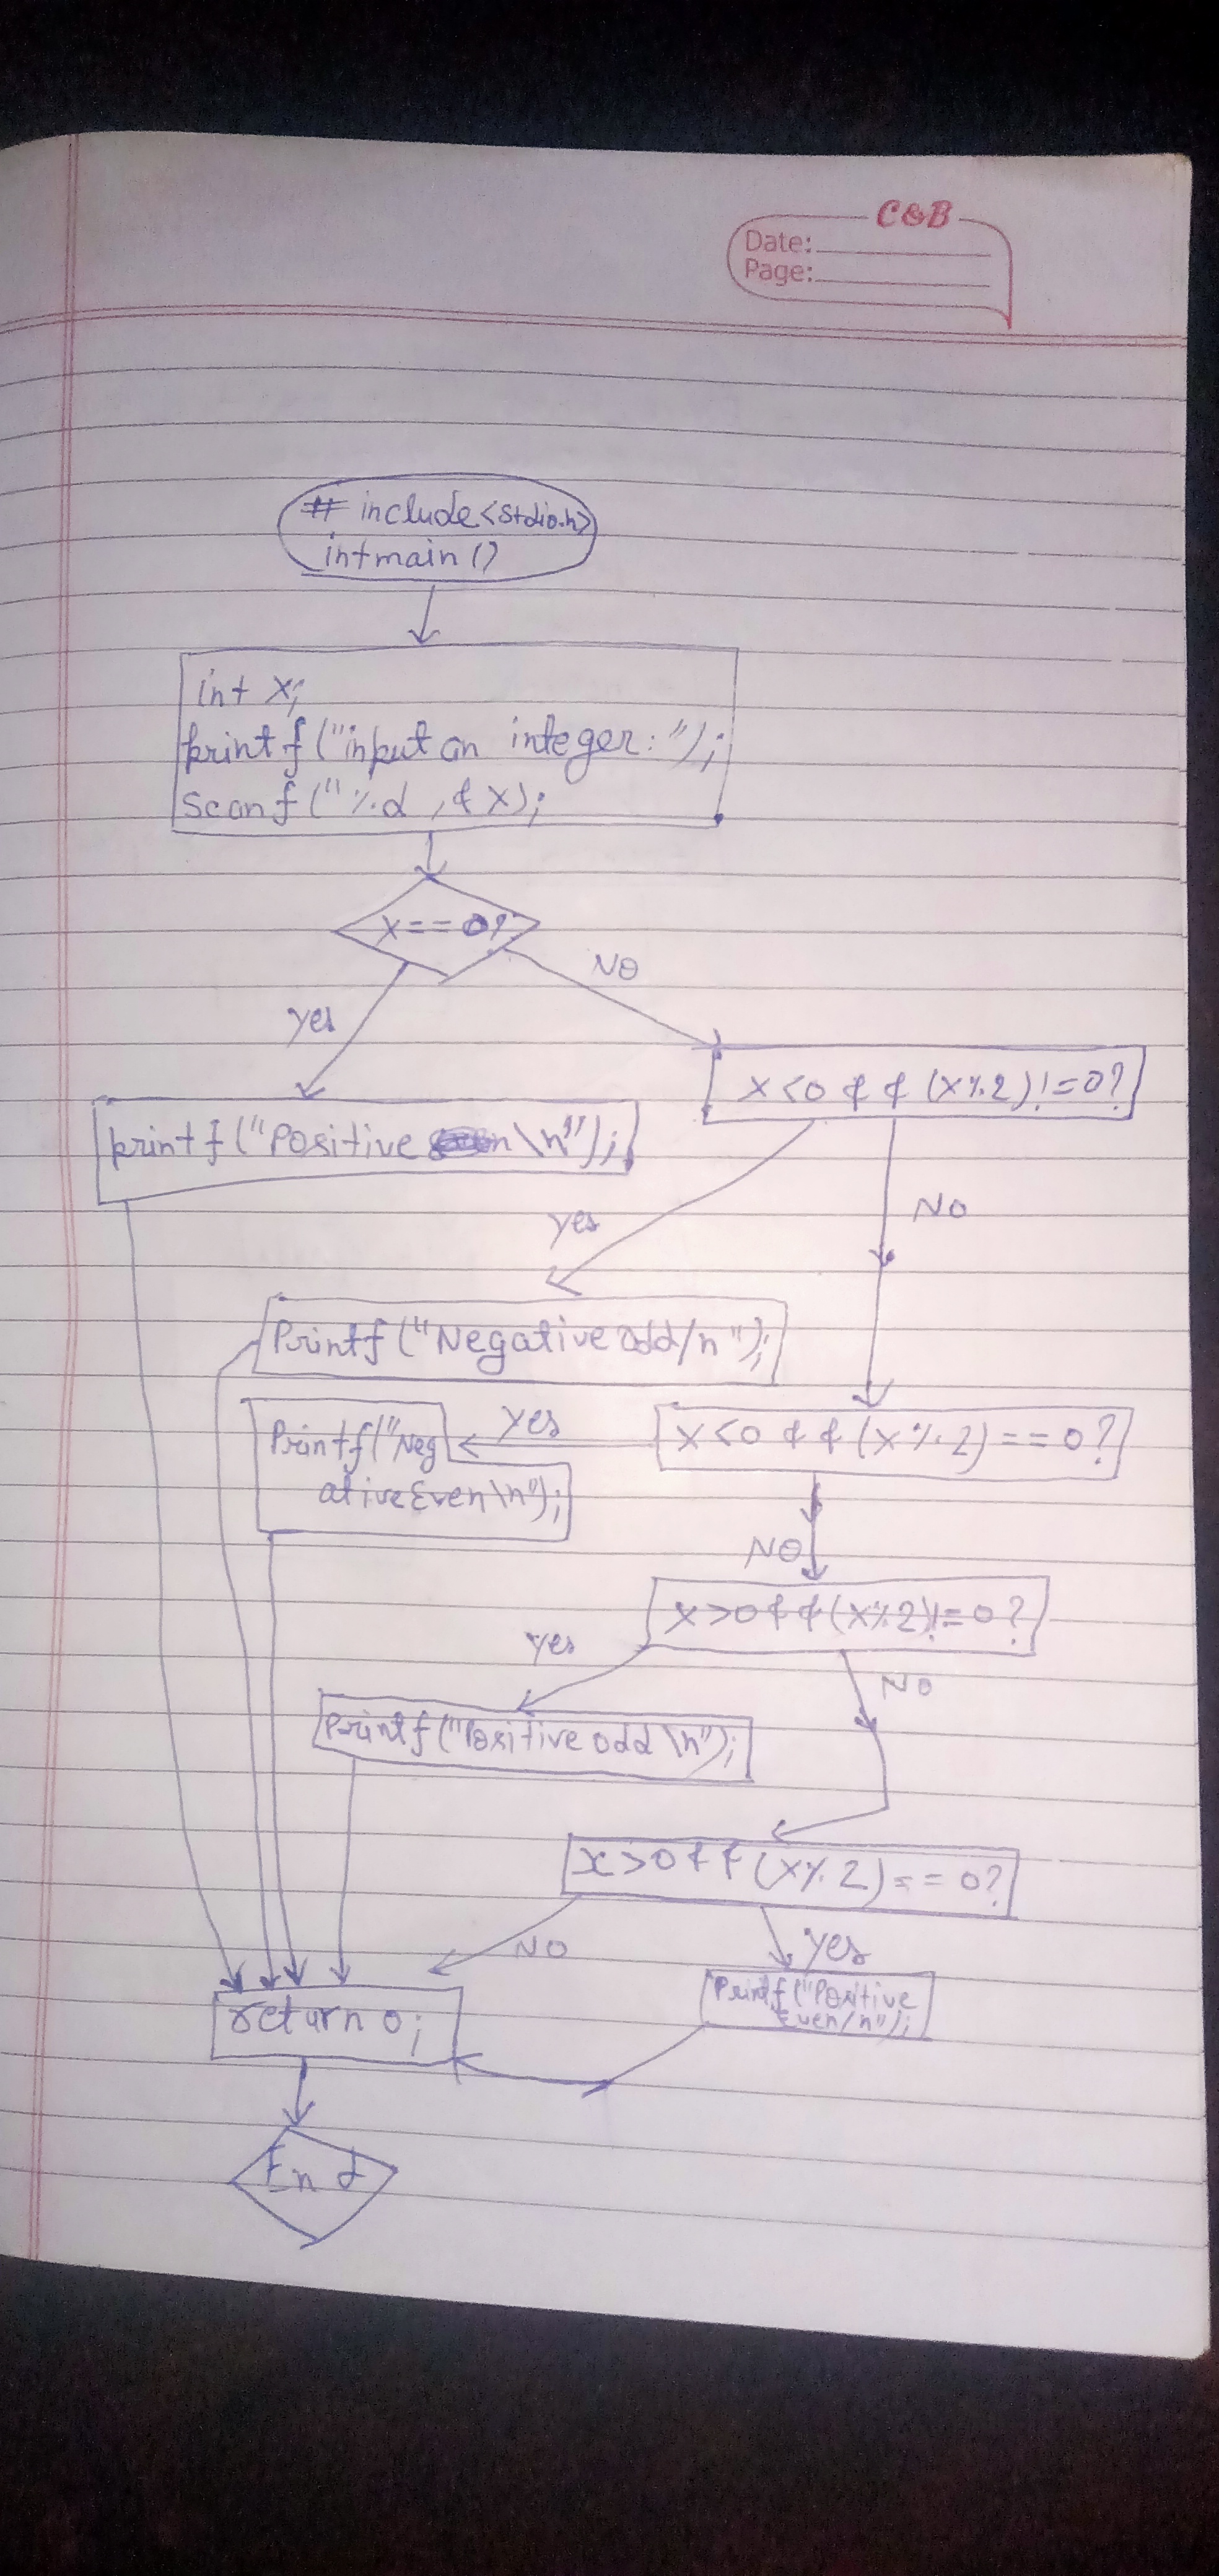 C&B
Date:
Page:
# include<stdio.h>
intmain()
int x;
printf("input an integer:");
scanf("%d ,&x);
x==0?
NO
yes
x<0 && (x%2)!=0?
printf("Positive \n");
yes
NO
Printf("Negative odd/n");
Printf("Neg
ativeEven\n");
yes
x<0 && (x%2)==0?
NO
x>0&&(x%2)!=0?
yes
NO
Printf("Positive odd \n");
x>0&&(x%2)==0?
NO
yes
Printf("Positive
Even/n");
return 0;
End